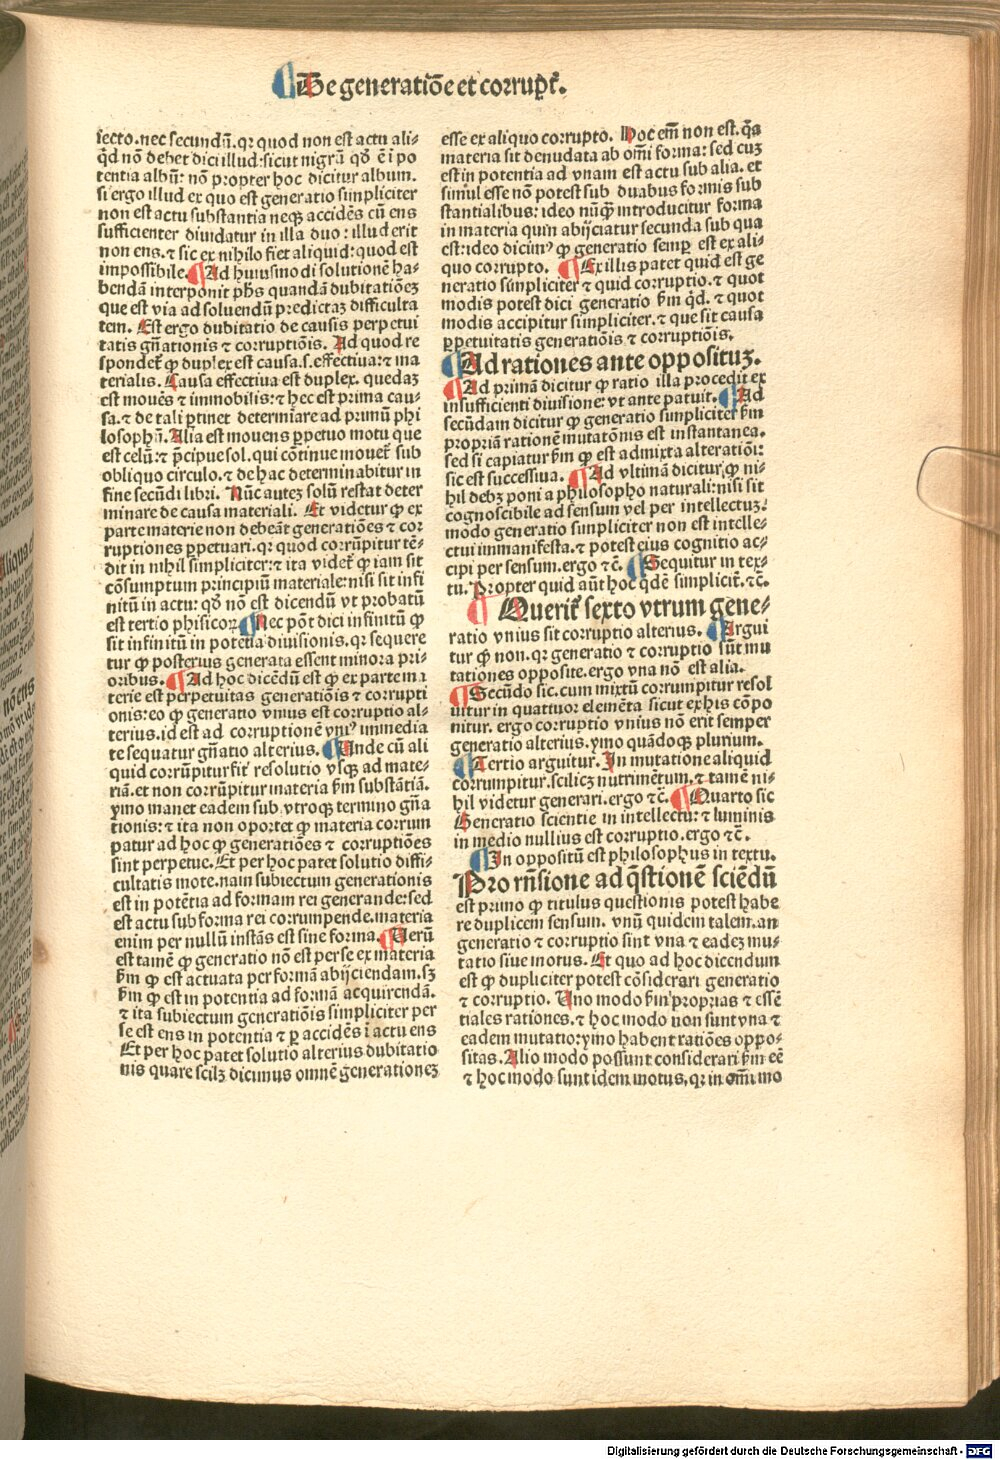 De generatiõe et corrupt̃.
iecto. nec secundũ. qꝛ quod non est actu ali⸗
q̃d nõ debet dici illud: sicut nigrũ qđ ẽ ĩ po
tentia albũ: nõ propter hoc dicitur album.
si ergo illud ex quo est generatio simpliciter
non est actu substantia neqꝫ accidẽs cũ ens
sufficienter diuidatur in illa duo: illud erit
non ens. ⁊ sic ex nihilo fiet aliquid: quod est
impossibile. Ad huiusmodi solutionẽ ha⸗
bendã interponit phs̃ quandã dubitationeꝫ
que est via ad soluendũ predictaꝫ difficulta
tem. Est ergo dubitatio de causis perpetui
tatis gñationis ⁊ corruptiõis. Ad quod re
spondet̃ ꝙ duplex est causa. s. effectiua: ⁊ ma
terialis. Causa effectiua est duplex. quedaꝫ
est mouẽs ⁊ immobilis: ⁊ hec est prima cau⸗
sa. ⁊ de tali ꝑtinet determiare ad primũ phi
losophũ. Alia est mouens ꝑpetuo motu que
est celũ: ⁊ p̃cipue sol. qui cõtinue mouet̃ sub
obliquo circulo. ⁊ de hac determinabitur in
fine secũdi libri. Nũc auteꝫ solũ restat deter
minare de causa materiali. Et videtur ꝙ ex
parte materie non debeãt generatiões ⁊ cor
ruptiones ꝑpetuari. qꝛ quod corrũpitur tẽ⸗
dit in nihil simpliciter: ⁊ ita videt̃ ꝙ iam sit
cõsumptum principiũ materiale: nisi sit infi
nitũ in actu: qđ nõ est dicendũ vt probatũ
est tertio phisicoꝝ. Nec põt dici infinitũ ꝙ
sit infinitũ in potẽtia diuisionis. qꝛ sequere
tur ꝙ posterius generata essent minora pri⸗
oribus. Ad hoc dicẽdũ est ꝙ ex parte ma
terie est perpetuitas generatiõis ⁊ corrupti
onis: eo ꝙ generatio vnius est corruptio al⸗
terius. id est ad corruptionẽ vniꝰ immedia
te sequatur gñatio alterius. Unde cũ ali
quid corrũpitur fit resolutio vsqꝫ ad mate⸗
riã. et non corrũpitur materia ẜm substãtiã.
ymo manet eadem sub vtroqꝫ termino gña
tionis: ⁊ ita non oportet ꝙ materia corrum
patur ad hoc ꝙ generatiões ⁊ corruptiões
sint perpetue. Et per hoc patet solutio diffi⸗
cultatis mote. nam subiectum generationis
est in potẽtia ad formam rei generande: sed
est actu sub forma rei corrumpende. materia
enim per nullũ instãs est sine forma. Uerũ
est tamẽ ꝙ generatio nõ est per se ex materia
ẜm ꝙ est actuata per formã abijciendam. sꝫ
ẜm ꝙ est in potentia ad formã acquirendã.
⁊ ita subiectum generatiõis simpliciter per
se est ens in potentia ⁊ ꝑ accidẽs ĩ actu ens
Et per hoc patet solutio alterius dubitatio
nis quare scilꝫ dicimus omnẽ generationeꝫ
esse ex aliquo corrupto. Hoc em̃ non est. q̃a
materia sit denudata ab om̃i forma: sed cuꝫ
est in potentia ad vnam est actu sub alia. et
simul esse nõ potest sub duabus formis sub
stantialibus: ideo nũq̃ introducitur forma
in materia quin abijciatur secunda sub qua
est: ideo dicimꝰ ꝙ generatio semꝑ est ex ali⸗
quo corrupto. Ex illis patet quid est ge
neratio simpliciter ⁊ quid corruptio. ⁊ quot
modis potest dici generatio ẜm q̃d. ⁊ quot
modis accipitur simpliciter. ⁊ que sit causa
ꝑpetuitatis generatiõis ⁊ corruptiõis.
Ad rationes ante oppositũꝫ.
Ad primã dicitur ꝙ ratio illa procedit ex
insufficienti diuisione: vt ante patuit. Ad
secũdam dicitur ꝙ generatio simpliciter ẜm
propriã rationẽ mutatõnis est instantanea.
sed si capiatur ẜm ꝙ est admixta alteratiõi:
sic est successiua. Ad vltimã dicitur ꝙ ni⸗
hil debꝫ poni a philosopho naturali: nisi sit
cognoscibile ad sensum vel per intellectuꝫ:
modo generatio simpliciter non est intelle⸗
ctui immanifesta. ⁊ potest eius cognitio ac⸗
cipi per sensum. ergo ⁊c̃. Sequitur in tex⸗
tu. Propter quid aũt hoc q̃dẽ simplicit̃. ⁊c̃.
Querit̃ sexto vtrum gene⸗
ratio vnius sit corruptio alterius. Argui
tur ꝙ non. qꝛ generatio ⁊ corruptio sũt mu
tationes opposite. ergo vna nõ est alia.
Secũdo sic. cum mixtũ corrumpitur resol
uitur in quattuor elemẽta sicut ex his cõpo
nitur. ergo corruptio vnius nõ erit semper
generatio alterius. ymo quãdoqꝫ plurium.
Tertio arguitur. In mutatione aliquid
corrumpitur. scilicꝫ nutrimẽtum. ⁊ tamẽ ni⸗
hil videtur generari. ergo ⁊c̃. Quarto sic
Generatio scientie in intellectu: ⁊ luminis
in medio nullius est corruptio. ergo ⁊c̃.
In oppositũ est philosophus in textu.
Pro rñsione ad q̃stionẽ sciẽdũ
est primo ꝙ titulus questionis potest habe
re duplicem sensum. vnũ quidem talem. an
generatio ⁊ corruptio sint vna ⁊ eadeꝫ mu⸗
tatio siue motus. Et quo ad hoc dicendum
est ꝙ dupliciter potest cõsiderari generatio
⁊ corruptio. Uno modo ẜm proprias ⁊ essẽ
tiales rationes. ⁊ hoc modo non sunt vna ⁊
eadem mutatio: ymo habent ratiões oppo⸗
sitas. Alio modo possunt considerari ẜm eẽ
⁊ hoc modo sunt idem motus. qꝛ in om̃i mo
Digitalisierung gefördert durch die Deutsche Forschungsgemeinschaft - DFG